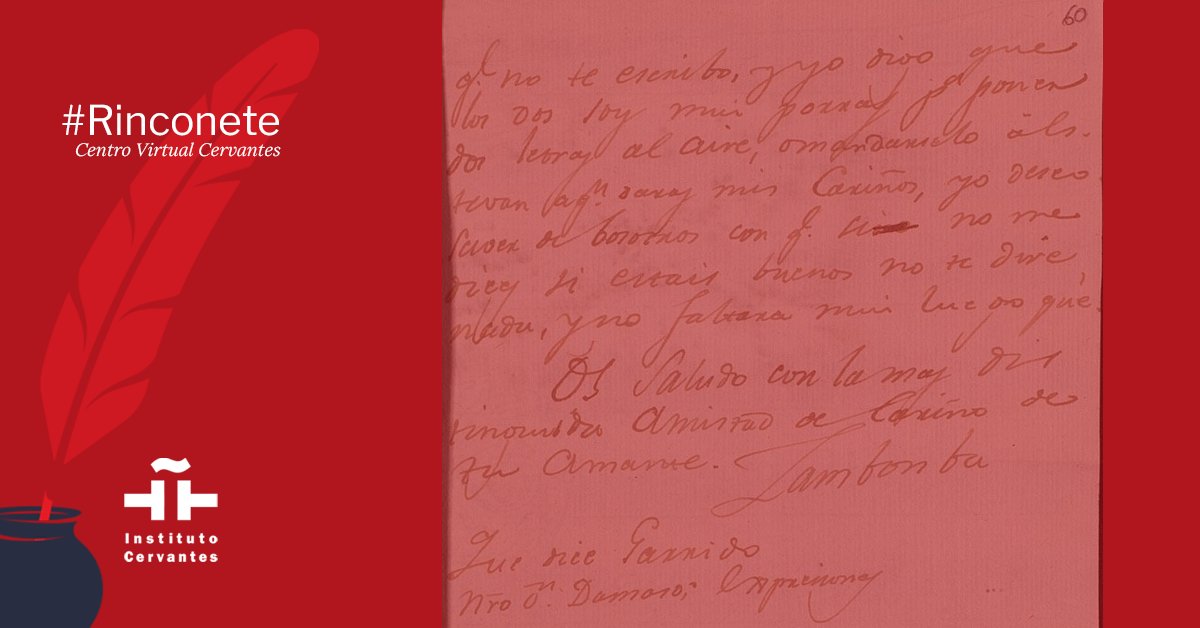 #Rinconete
Centro Virtual Cervantes
Instituto
Cervantes
60
q.e no te escribo, y yo digo que
los dos soy mui porras, p.a poner
dos letras al aire, o mandarselo
tevan aq.n daras mis Cariños, yo deseo
saver de bosotros con q.e no me
dices si estais buenos no te dire
nada, y no faltara mui luego que
Os Saludo con la mas dis
tinguida Amistad de Cariño de
tu Amante.
Zambonba
Que dice Garrido
Nro D.n Damaso; Expresiones